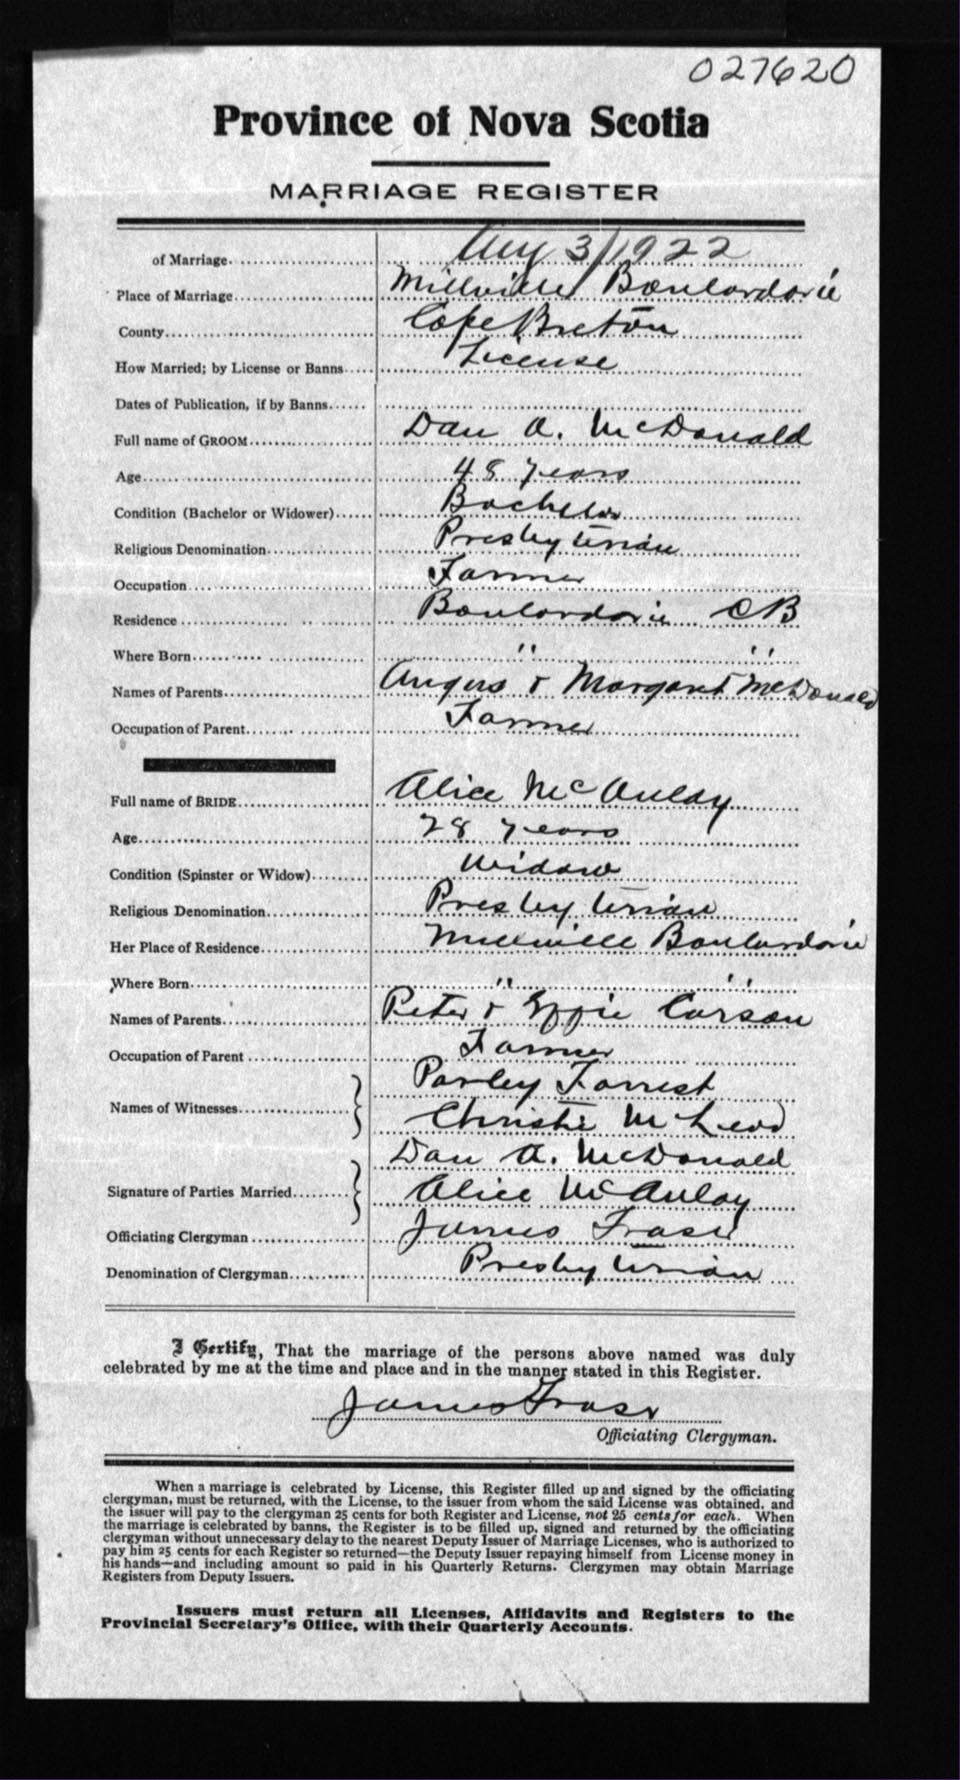 027620
Province of Nova Scotia
MARRIAGE REGISTER
of Marriage Aug 3/1922
Place of Marriage Millville Boulardarie
County Cape Breton
How Married; by License or Banns License
Dates of Publication, if by Banns
Full name of GROOM Dan A. McDonald
Age 48 years
Condition (Bachelor or Widower) Bachelor
Religious Denomination Presbyterian
Occupation Farmer
Residence Boulardarie CB
Where Born " "
Names of Parents Angus & Margaret McDonald
Occupation of Parent Farmer
Full name of BRIDE Alice McAulay
Age 28 years
Condition (Spinster or Widow) Widow
Religious Denomination Presbyterian
Her Place of Residence Millville Boulardarie
Where Born " "
Names of Parents Peter & Effie Carson
Occupation of Parent Farmer
Parley Forrest
Names of Witnesses
Christie McLeod
Dan A. McDonald
Signature of Parties Married Alice McAulay
Officiating Clergyman James Fraser
Denomination of Clergyman Presbyterian
I Certify, That the marriage of the persons above named was duly
celebrated by me at the time and place and in the manner stated in this Register.
James Fraser
Officiating Clergyman.
When a marriage is celebrated by License, this Register filled up and signed by the officiating
clergyman, must be returned, with the License, to the issuer from whom the said License was obtained, and
the issuer will pay to the clergyman 25 cents for both Register and License, not 25 cents for each. When
the marriage is celebrated by banns, the Register is to be filled up, signed and returned by the officiating
clergyman without unnecessary delay to the nearest Deputy Issuer of Marriage Licenses, who is authorized to
pay him 25 cents for each Register so returned—the Deputy Issuer repaying himself from License money in
his hands—and including amount so paid in his Quarterly Returns. Clergymen may obtain Marriage
Registers from Deputy Issuers.
Issuers must return all Licenses, Affidavits and Registers to the
Provincial Secretary's Office, with their Quarterly Accounts.